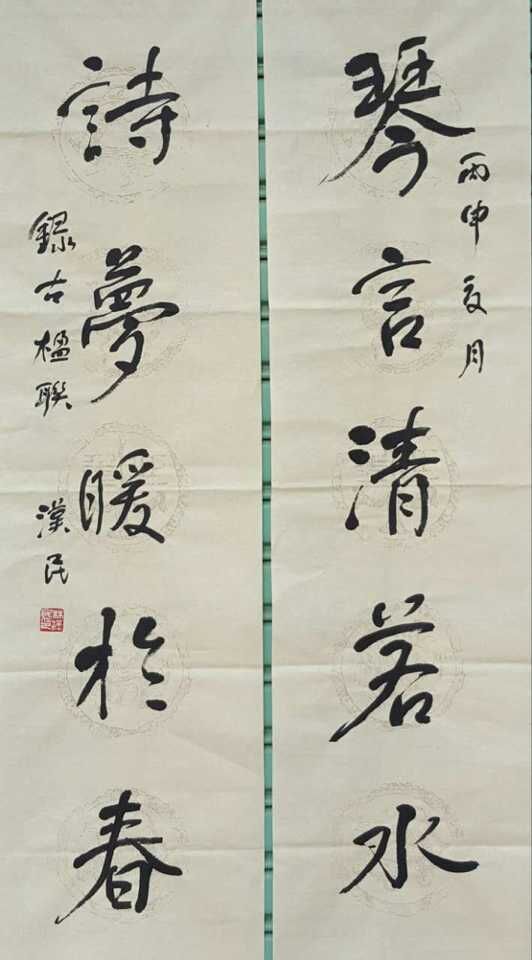 琴言清若水
丙申夏月
詩夢暖於春
錄古楹聯
漢民